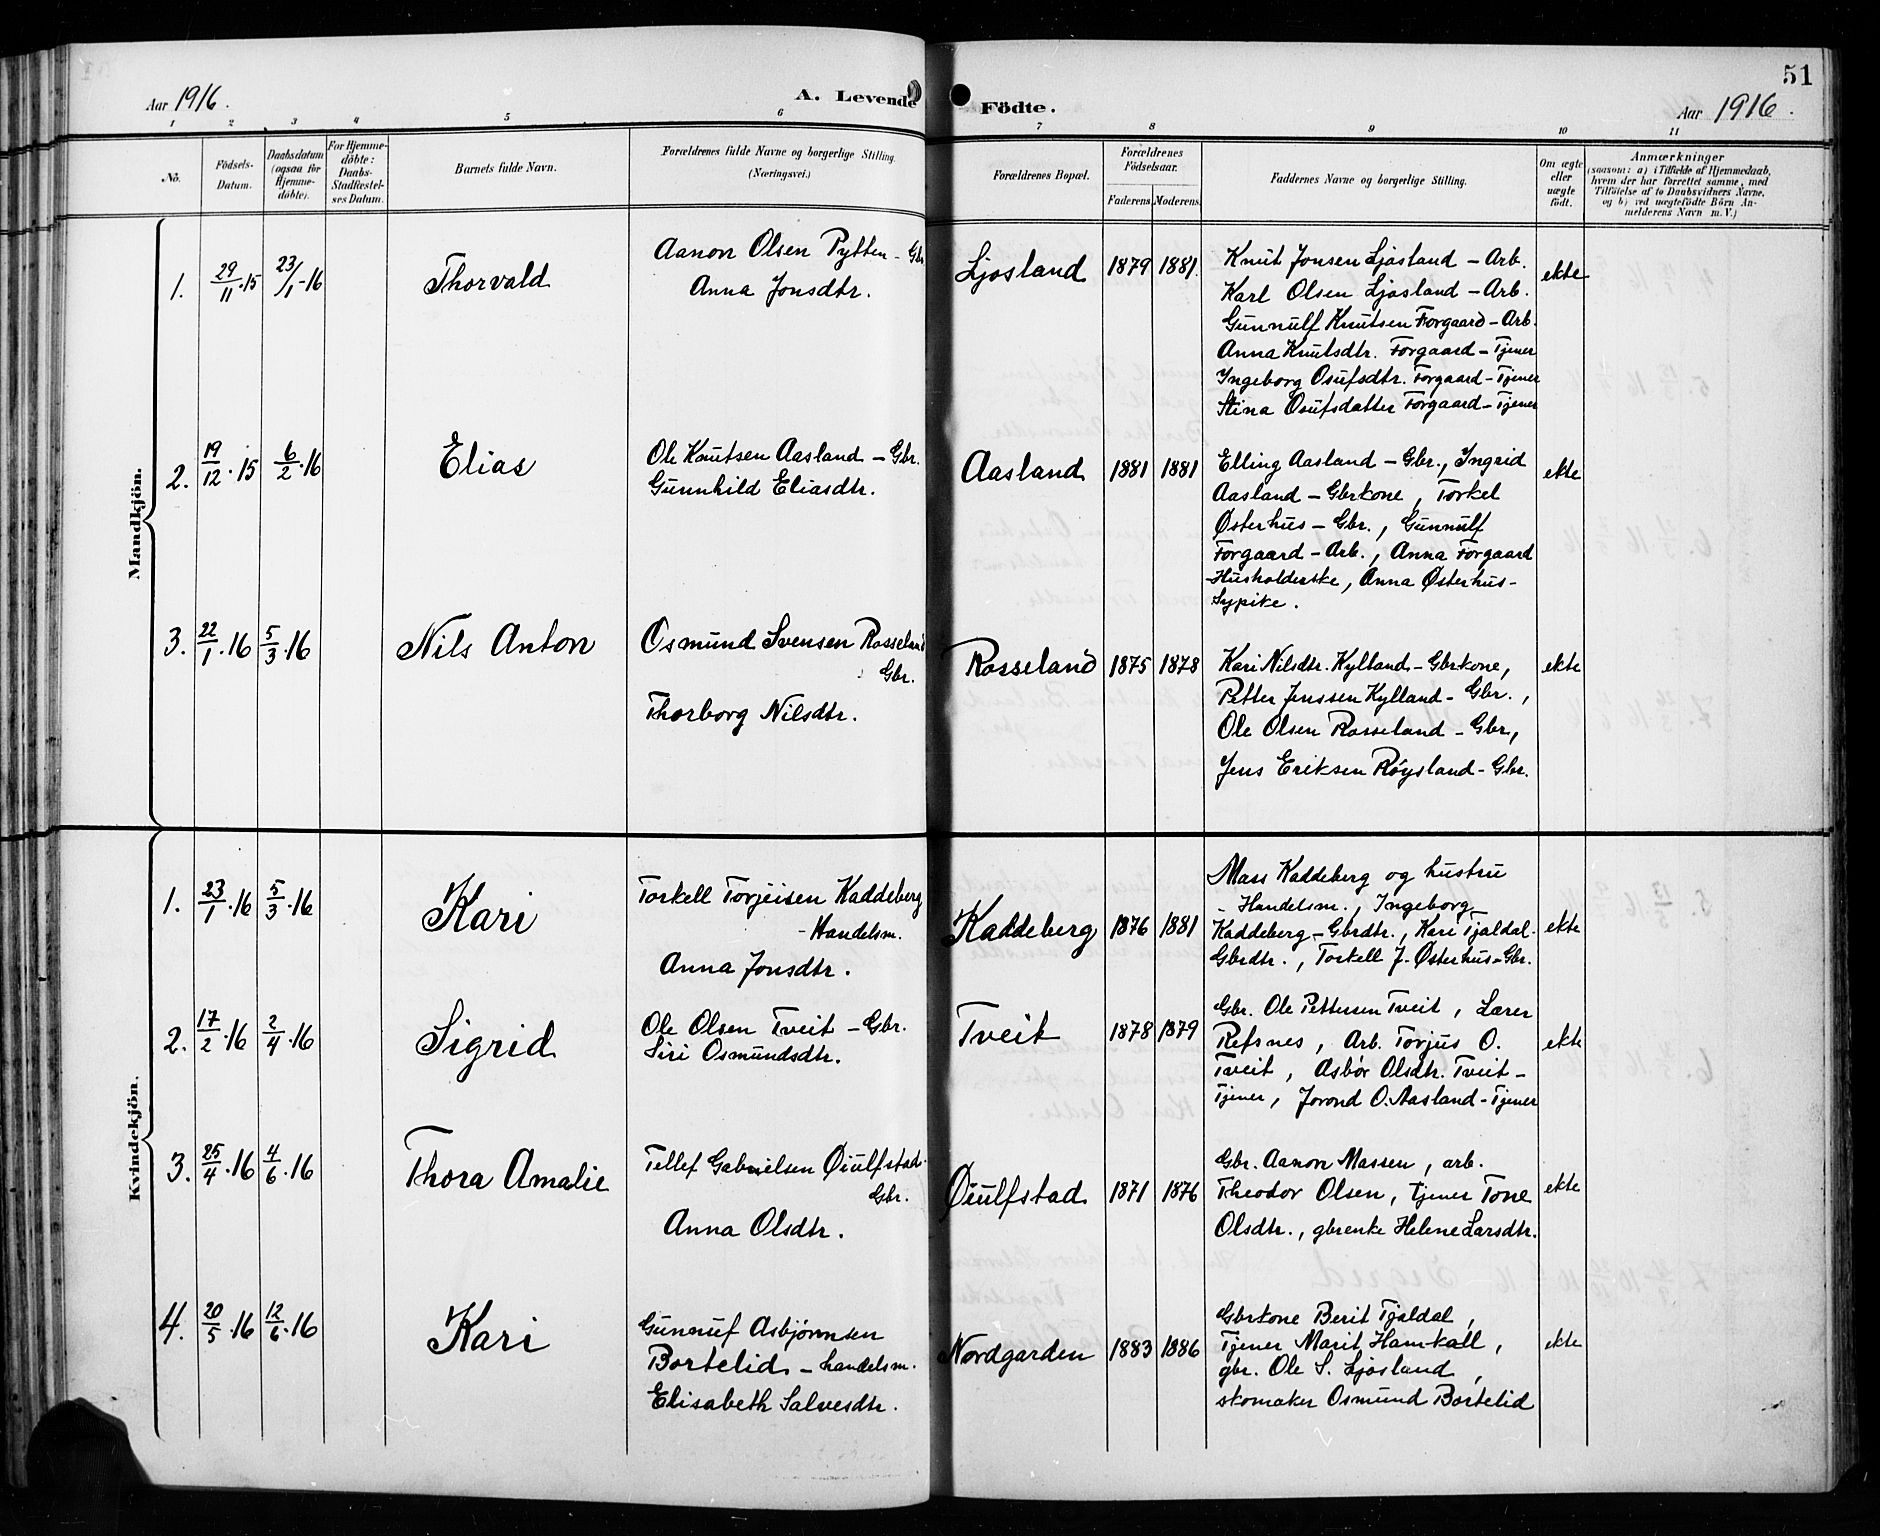 Aar 1916. A. Levende Födte. Aar 1916. 51
1 2 3 4 5 6 7 8 9 10 11
No.
Födsels-
Datum.
Daabsdatum
(ogsaa for
Hjemme-
döbte).
For Hjemme-
döbte:
Daabs-
Stadfæstel-
ses Datum.
Barnets fulde Navn.
Forældrenes fulde Navne og borgerlige Stilling.
(Næringsvei.)
Forældrenes Bopæl.
Forældrenes
Födselsaar.
Faderens. Moderens.
Faddernes Navne og borgerlige Stilling.
Om ægte
eller
uægte
födt.
Anmærkninger
(saasom: a) i Tilfælde af Hjemmedaab,
hvem der har forrettet samme, med
Tilföielse af to Daabsvidners Navne,
og b) ved uægtefödte Börn An-
melderens Navn m. V.)
Mandkjön.
1. 29/11.15 23/1-16 Thorvald
Aanon Olsen Pytten - Gbr
Anna Jonsdtr.
Ljosland 1879 1881.
Knut Jonsen Ljosland - Arb.
Karl Olsen Ljosland - Arb.
Gunnulf Knutsen Forgaard - Arb.
Anna Knutsdtr. Forgaard - Tjener
Ingeborg Osufsdtr. Forgaard - Tjener
Stina Osufsdatter Forgaard - Tjener
ekte
2. 19/12.15 6/2.16 Elias
Ole Knutsen Aasland - Gbr.
Gunnhild Eliasdtr.
Aasland 1881 1881
Elling Aasland - Gbr., Ingrid
Aasland - Gbrkone, Torkel
Østerhus - Gbr., Gunnulf
Forgaard - Arb., Anna Forgaard
- Husholderske, Anna Østerhus -
Sypike.
ekte
3. 22/1.16 5/3.16 Nils Anton
Osmund Svensen Rosseland
Gbr.
Thorborg Nilsdtr.
Rosseland 1875 1878
Kari Nilsdtr. Kylland - Gbrkone,
Petter Jenssen Kylland - Gbr.,
Ole Olsen Rosseland - Gbr,
Jens Eriksen Röysland - Gbr.
ekte
Kvindekjön.
1. 23/1.16 5/3.16 Kari
Torkell Torjeisen Kaddeberg
- Handelsm.
Anna Jonsdtr.
Kaddeberg 1876 1881
Mass Kaddeberg og hustru
- Handelsm., Ingeborg
Kaddeberg - Gbrdtr., Kari Tjaldal -
Gbrdtr., Torkell J. Østerhus - Gbr.
ekte
2. 17/2.16 2/4.16 Sigrid
Ole Olsen Tveit - Gbr.
Siri Osmundsdtr.
Tveit 1878 1879
Gbr. Ole Pettersen Tveit, Lærer
Refsnes, Arb. Torjus O.
Tveit, Asbör Olsdtr. Tveit -
Tjener, Jorond O. Aasland - Tjener
ekte
3. 25/4.16 4/6.16 Thora Amalie
Tellef Gabrielsen Øiulfstad -
Gbr.
Anna Olsdtr.
Øiulfstad 1871 1876
Gbr. Aanon Massen, arb.
Theodor Olsen, tjener Tone
Olsdtr., gbrenke Helene Larsdtr.
ekte
4. 20/5.16 12/6.16 Kari
Gunnuf Asbjörnsen
Bortelid - handelsm.
Elisabeth Salvesdtr.
Nordgarden 1883 1886
Gbrkone Berit Tjaldal,
Tjener Marit Hamkall,
gbr. Ole S. Ljosland,
skomaker Osmund Bortelid
ekte